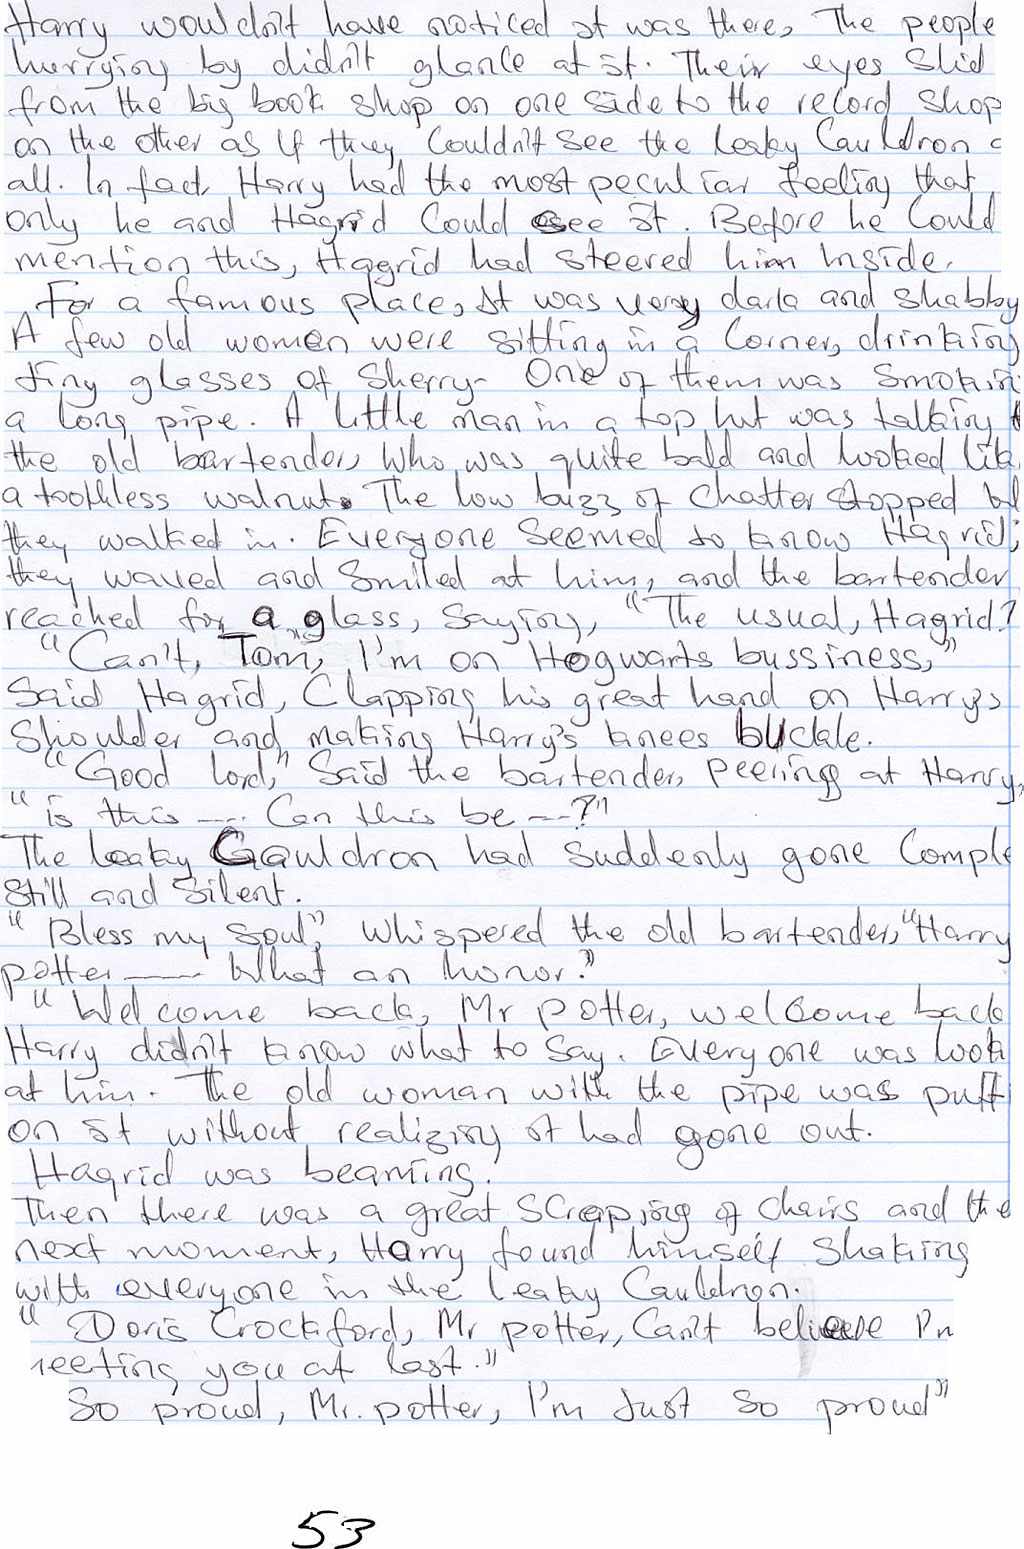 Harry wouldn't have noticed it was there, The people
hurrying by didn't glance at it. Their eyes slid
from the big book shop on one side to the record shop
on the other as If they Couldn't see the Leaky Cauldron
all. In fact, Harry had the most peculiar feeling that
only he and Hagrid Could see it. Before he Could
mention this, Hagrid had steered him Inside.
For a famous place, It was very dark and shabby
A few old women were sitting in a Corner, drinking
tiny glasses of Sherry. One of them was Smokin
a long pipe. A little man in a top hat was talking t
the old bartender, Who was quite bald and looked lik
a toothless walnut. The low buzz of Chatter stopped
they walked in. Everyone Seemed to know Hagrid;
they waved and Smiled at him, and the bartender
reached for a glass, Saying, "The usual, Hagrid?
"Can't, Tom", I'm on Hogwarts bussiness,"
Said Hagrid, Clapping his great hand on Harry's
Shoulder and making Harry's knees buckle.
"Good lord," Said the bartender, peering at Harry,
"is this --- Can this be --?"
The leaky Cauldron had suddenly gone Comple
Still and Silent.
"Bless my Soul", Whispered the old bartender, "Harry
potter ---- What an honor."
"Welcome back, Mr potter, welcome back
Harry didn't know what to Say. Everyone was look
at him. The old woman with the pipe was puff
on it without realizing it had gone out.
Hagrid was beaming.
Then there was a great Scrapping of Chairs and the
next moment, Harry found himself Shaking
with everyone in the Leaky Cauldron.
"Doris Crockford, Mr potter, Can't believe I'm
meeting you at last."
So proud, Mr. potter, I'm Just So proud"
53